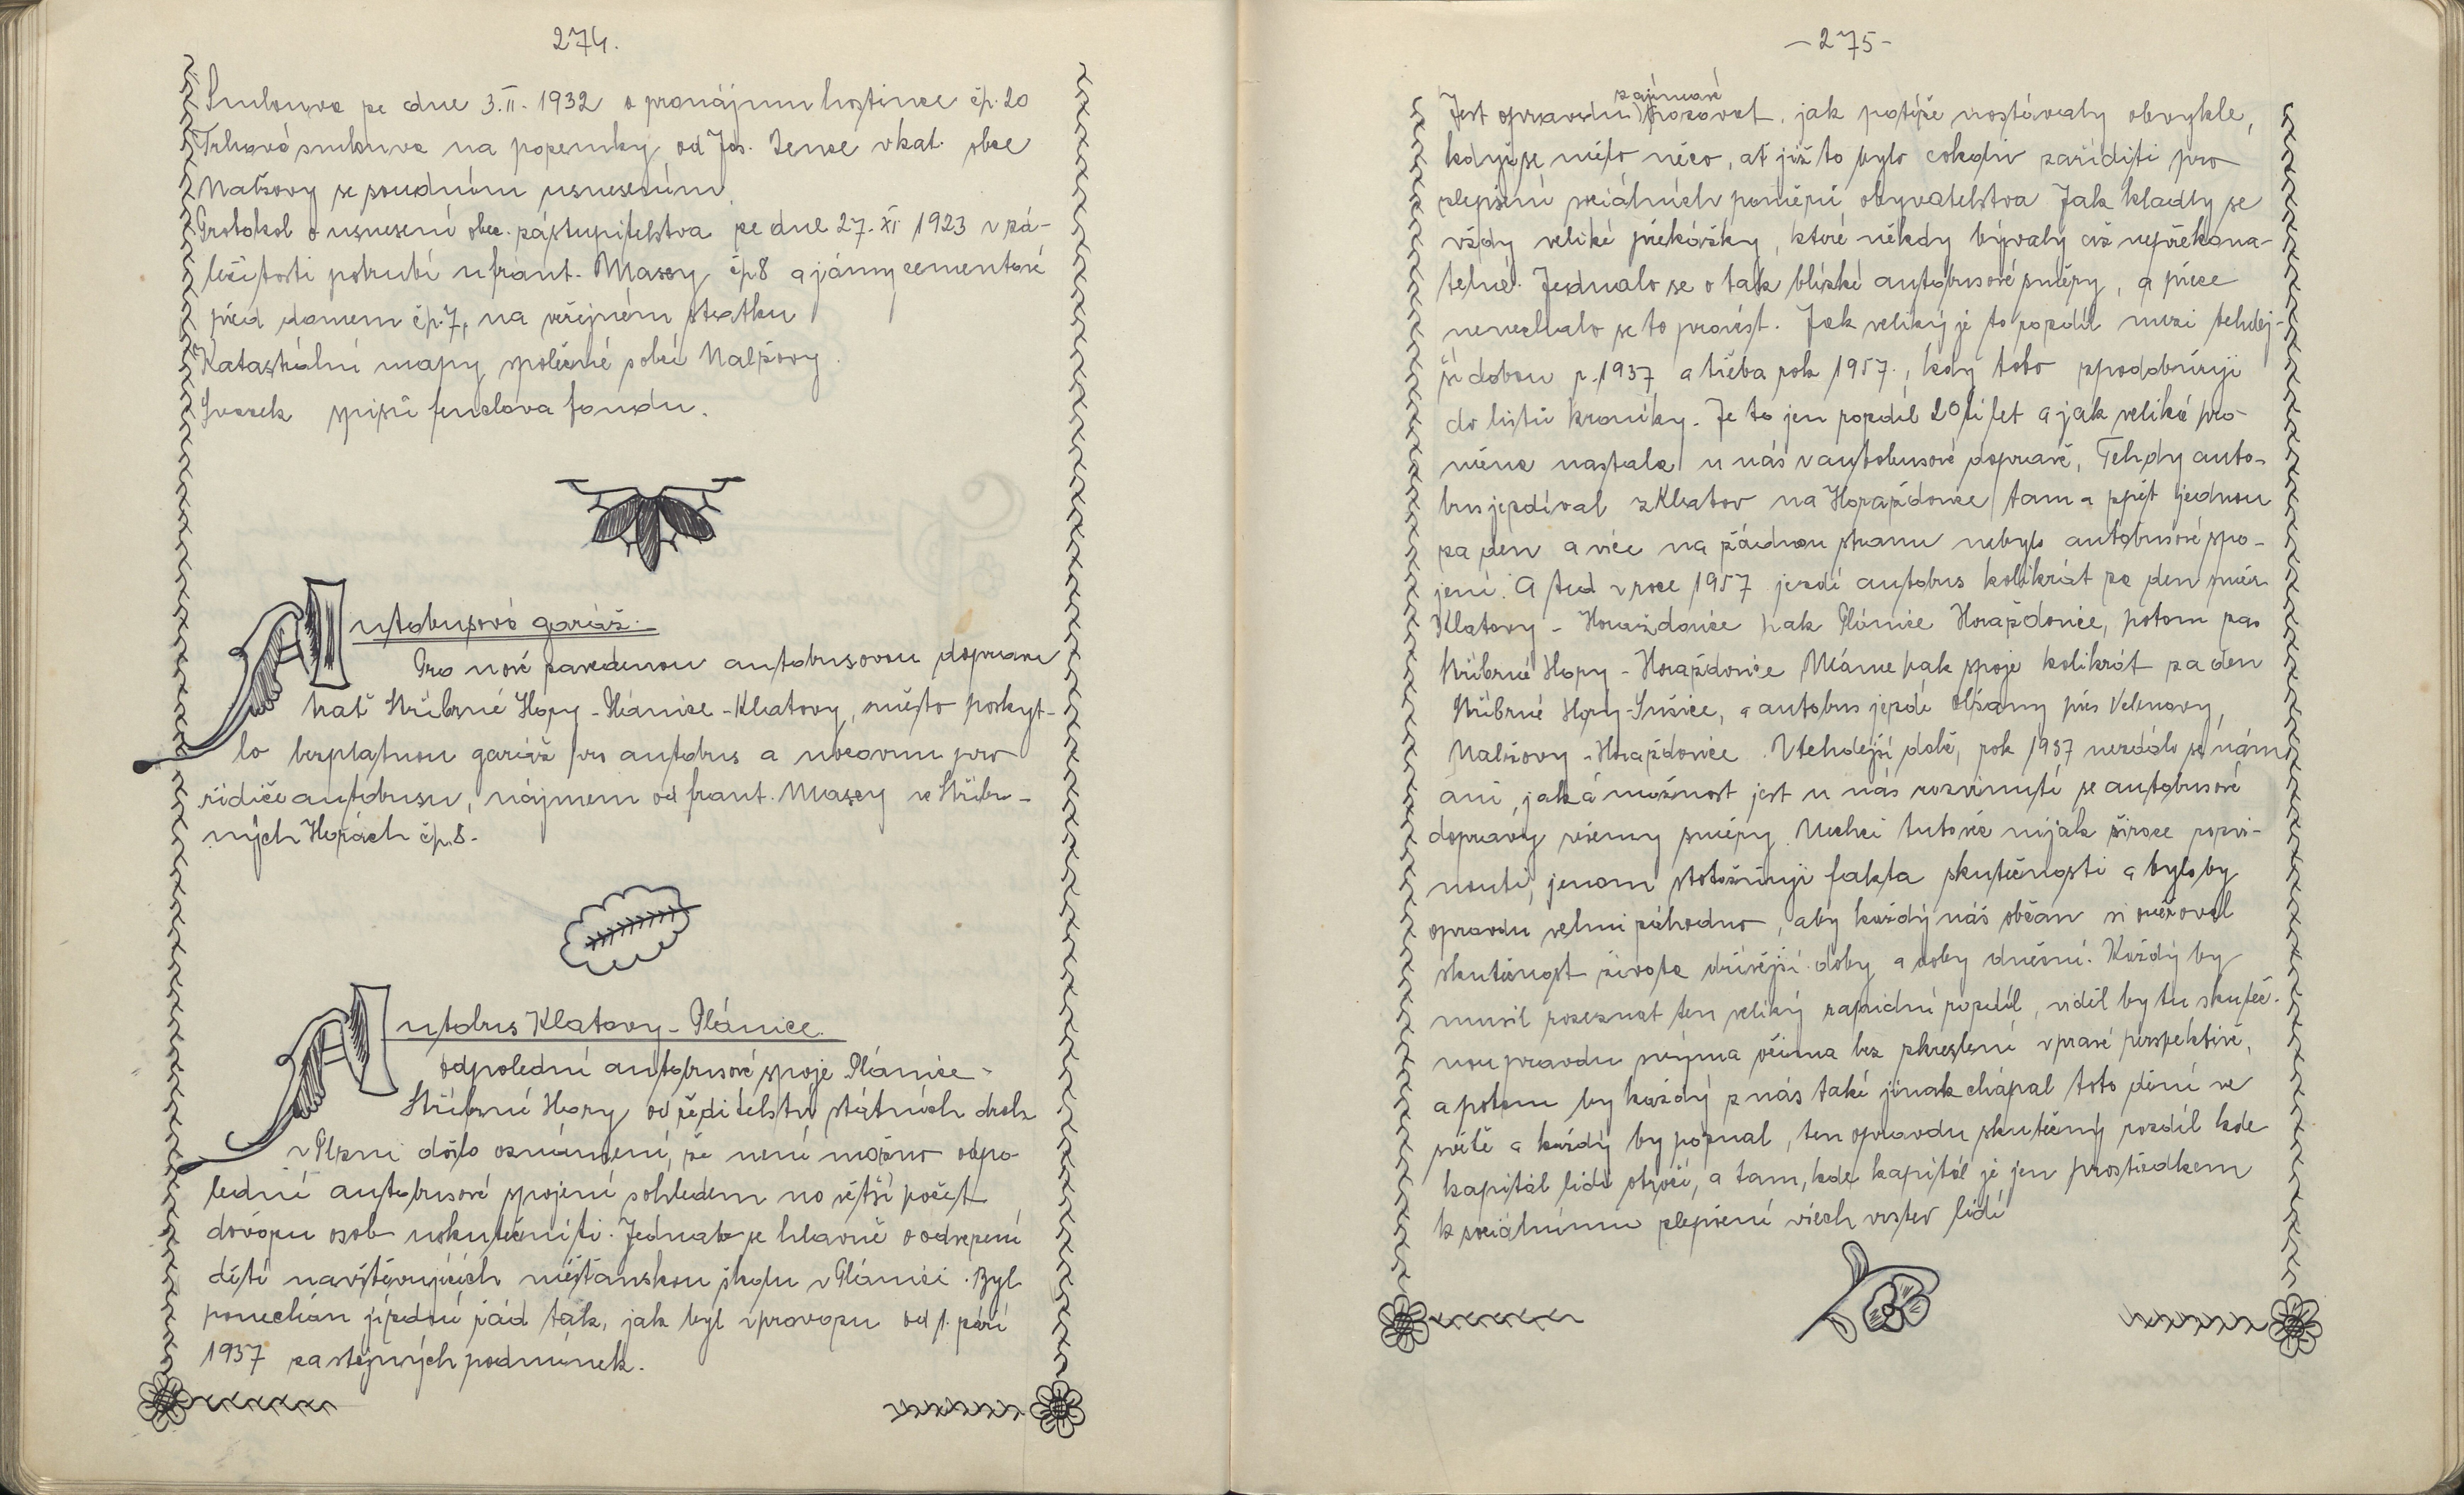 274.
Smlouva ze dne 3.II. 1932 o pronájmu hostince čp. 20
Trhová smlouva na pozemky od Jos. Zence v kat. obce
Nalžovy se soudním usnesením.
Protokol o usnesení obec. zastupitelstva ze dne 27. XI 1923 v zá-
ležitosti potrubí u frant. Masey čp 8 a jámy cementové
před domem čp. 7, na veřejném statku
Katastrální mapy společné s obcí Nalžovy.
Svazek spisů fenclova fondu.
Autobusová garáž.
Pro nově zavedenou autobusovou dopravu
trať Stříbrné Hory - Plánice - Klatovy, město poskyt-
lo bezplatnou garáž pro autobus a nocovnu pro
řidiče autobusu, nájmem od frant. Masey ve Stříbr-
ných Horách čp. 8.
Autobus Klatovy - Plánice.
odpolední autobusové spoje Plánice -
Stříbrné Hory, od ředitelství státních drah
v Plzni došlo oznámení, že není možno odpo-
lední autobusové spojení s ohledem na větší počet
dovozu osob uskutečniti. Jednalo se hlavně o odvezení
dětí navštěvujících měšťanskou školu v Plánici. Byl
ponechán jízdní řád tak, jak byl v provozu od 1. září
1937 za stejných podmínek.
- 275 -
zajímavé
Jest opravdu pozorovat, jak potíže nastávaly obvykle,
když se mělo něco, ať již to bylo cokoliv zaříditi pro
zlepšení sociálních poměrů obyvatelstva Jak kladly se
vždy veliké překážky, které někdy bývaly až nepřekona-
telné. Jednalo se o tak blízké autobusové směry, a přece
nenechalo se to provést. Jak veliký je to rozdíl mezi tehdej-
ší dobou r. 1937 a třeba rok 1957., kdy toto zpodobňuji
do listů kroniky. Je to jen rozdíl 20ti let a jak veliká pro-
měna nastala u nás v autobusové dopravě, Tehdy auto-
bus jezdíval z Klatov na Horažďovice tam a zpět jednou
za den a více na žádnou stranu nebylo autobusové spo-
jení. A teď v roce 1957 jezdí autobus kolikrát za den směr
Klatovy - Horažďovice pak Plánice Horažďovice, potom zas
Stříbrné Hory - Horažďovice Máme pak spoje kolikrát za den
Stříbrné Hory - Sušice, a autobus jezdí Olšany přes Velenovy,
Nalžovy - Horažďovice. V tehdejší době, rok 1937 nezdálo se nám
ani, jaká možnost jest u nás rozvinutí se autobusové
dopravy všemy směry. Nechci tuto věc nijak široce rozvi-
nouti, jenom stotožňuji fakta skutečnosti a bylo by
opravdu velmi záhodno, aby každý náš občan si ověřoval
skutečnost života dřívější doby a doby dnešní. Každý by
musil rozeznat ten veliký rapidní rozdíl, viděl by tu skuteč-
nou pravdu svýma očima bez zkreslení v pravé perspektivě,
a potom by každý z nás také jinak chápal toto dění ve
světě a každý by poznal, ten opravdu skutečný rozdíl kde
kapitál lidi otročí, a tam, kde kapitál je jen prostředkem
k sociálnímu zlepšení všech vrstev lidí